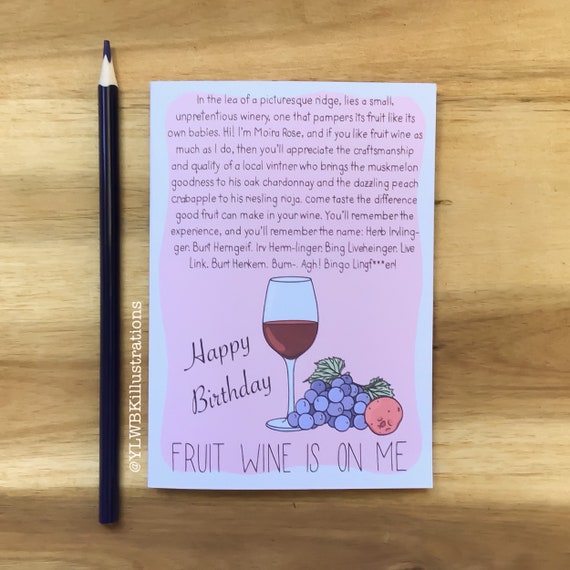 In the lea of a picturesque ridge, lies a small,
unpretentious winery, one that pampers its fruit like its
own babies. Hi! I'm Moira Rose, and if you like fruit wine as
much as I do, then you'll appreciate the craftsmanship
and quality of a local vintner who brings the muskmelon
goodness to his oak chardonnay and the dazzling peach
crabapple to his riesling rioja. Come taste the difference
good fruit can make in your wine. You'll remember the
experience, and you'll remember the name: Herb Irvling-
ger. Burt Herngeif. Irv Herm-linger. Bing Liveheinger. Live
Link. Burt Herkern. Burn-. Agh! Bingo Lingf***er!
Happy
Birthday
FRUIT WINE IS ON ME
@YLWBKillustrations